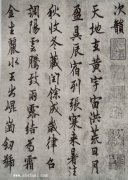 次韻
天地玄黃宇宙洪荒日月
盈昃辰宿列張寒来暑往
秋收冬藏閏餘成歲律
調陽雲騰致雨露結爲霜
金生麗水玉出崑崗劍號